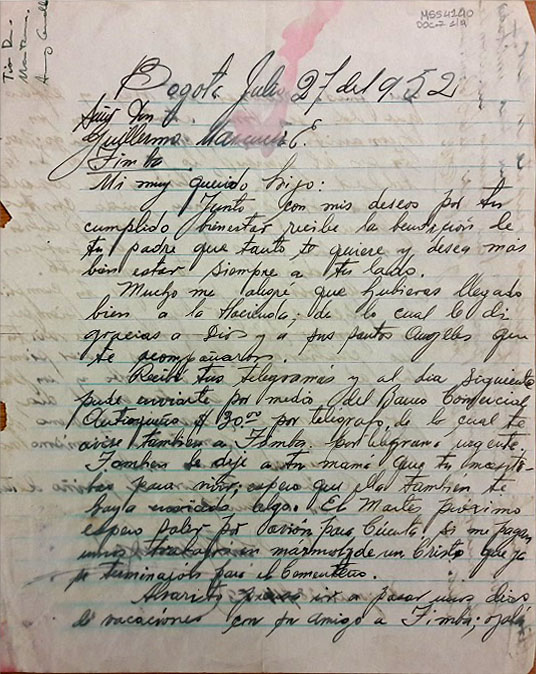 MSS4190
DOC-7 1/2
Bogotá Julio 27 del 1952
Señ Don
Guillermo E.
Timba
Mi muy querido hijo:
Junto con mis deseos por tu
cumplido bienestar recibe la bendición de
tu padre que tanto te quiere y desea más
bien estar siempre a tu lado.
Mucho me alegré que hubieras llegado
bien a la Hacienda; de lo cual le di
gracias a Dios y a sus santos Angeles que
te acompañaron.
Recibí tus telegramas y al dia siguiente
pude enviarte por medio del Banco Comercial
Antioqueño $ 30.00 por telégrafo, de lo cual te
avisé tambien a Timba, por telegrama urgente,
Tambien le dije a tu mamá que tu necesita-
bas para vivir; espero que ella tambien te
haya enviado algo. El Martes proximo
espero salir por avión para Cúcuta si me pagan
unos trabajos en marmol y de un Cristo que ya
se terminó para el Cementerio.
Alvarito ir a pasar unos dias
de vacaciones con su amigo a Timba; ojalá